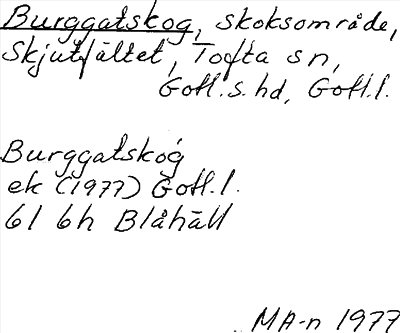 Burggatskog, skoksområde,
Skjutfältet, Tofta sn,
Gotl. s. hd, Gotl. l.
Burggatskog
ek (1977) Gotl. l.
6I 6h Blåhäll
MA-n 1977